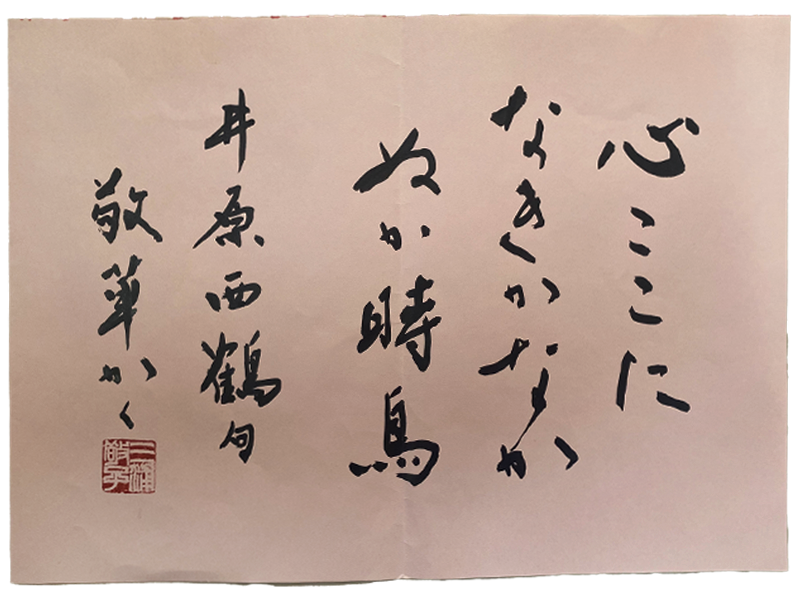 心ここに
なきかなか
ぬか時鳥
井原西鶴句
敬華かく